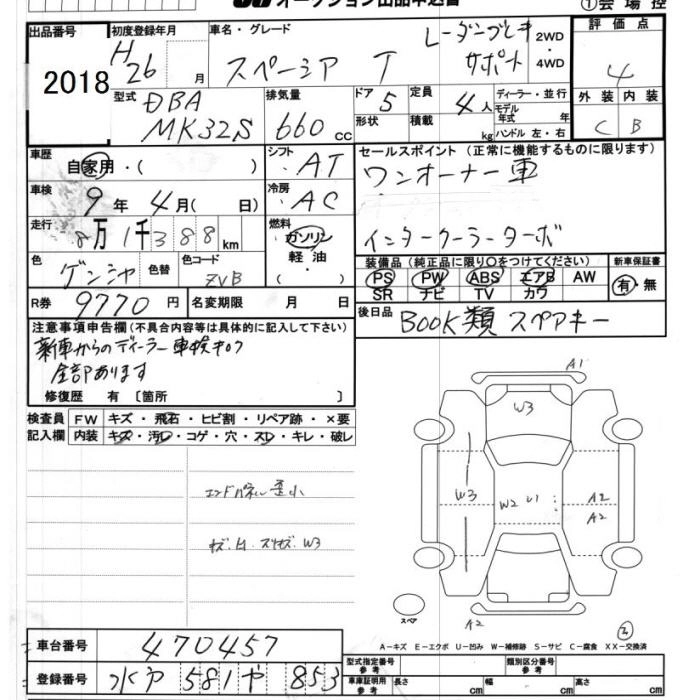 オークション出品申込書 ①会場控
出品番号 2018
初度登録年月 H26 月
車名・グレード スペーシア T レーダーブレーキサポート
2WD・4WD
評価点 4
型式 DBA MK32S
排気量 660 cc
ドア 5 形状
定員 4人 積載 kg
ディーラー・並行
モデル年式 年
ハンドル 左・右
外装 C 内装 B
車歴 自家用・( )
シフト AT
セールスポイント (正常に機能するものに限ります)
ワンオーナー車
インタークーラーターボ
車検 9年 4月( 日)
冷房 AC
走行 8万1千388km
燃料 ガソリン 軽油 ( )
色 ゲンシャ 色替 色コード ZVB
装備品 (純正品に限り○をつけてください) 新車保証書
PS PW ABS エアB AW 有・無
SR ナビ TV カワ
R券 9770 円 名変期限 月 日
後日品 BOOK類 スペアキー
注意事項申告欄(不具合内容等は具体的に記入して下さい)
新車からのディーラー車検キロク
全部あります
修復歴 有 〔箇所 〕
検査員 FW キズ・飛石・ヒビ割・リペア跡・×要
記入欄 内装 キズ・汚レ・コゲ・穴・スレ・キレ・破レ
A1
W3
W3 W2 U1 A2
A2
歪小
W3
スペア
A2
3
A-キズ E-エクボ U-凹み W-補修跡 S-サビ C-腐食 XX-交換済
車台番号 470457
登録番号 水戸 581 や 853
型式指定番号 参考 類別区分番号 参考
車庫証明用 参考 長さ cm 幅 cm 高さ cm